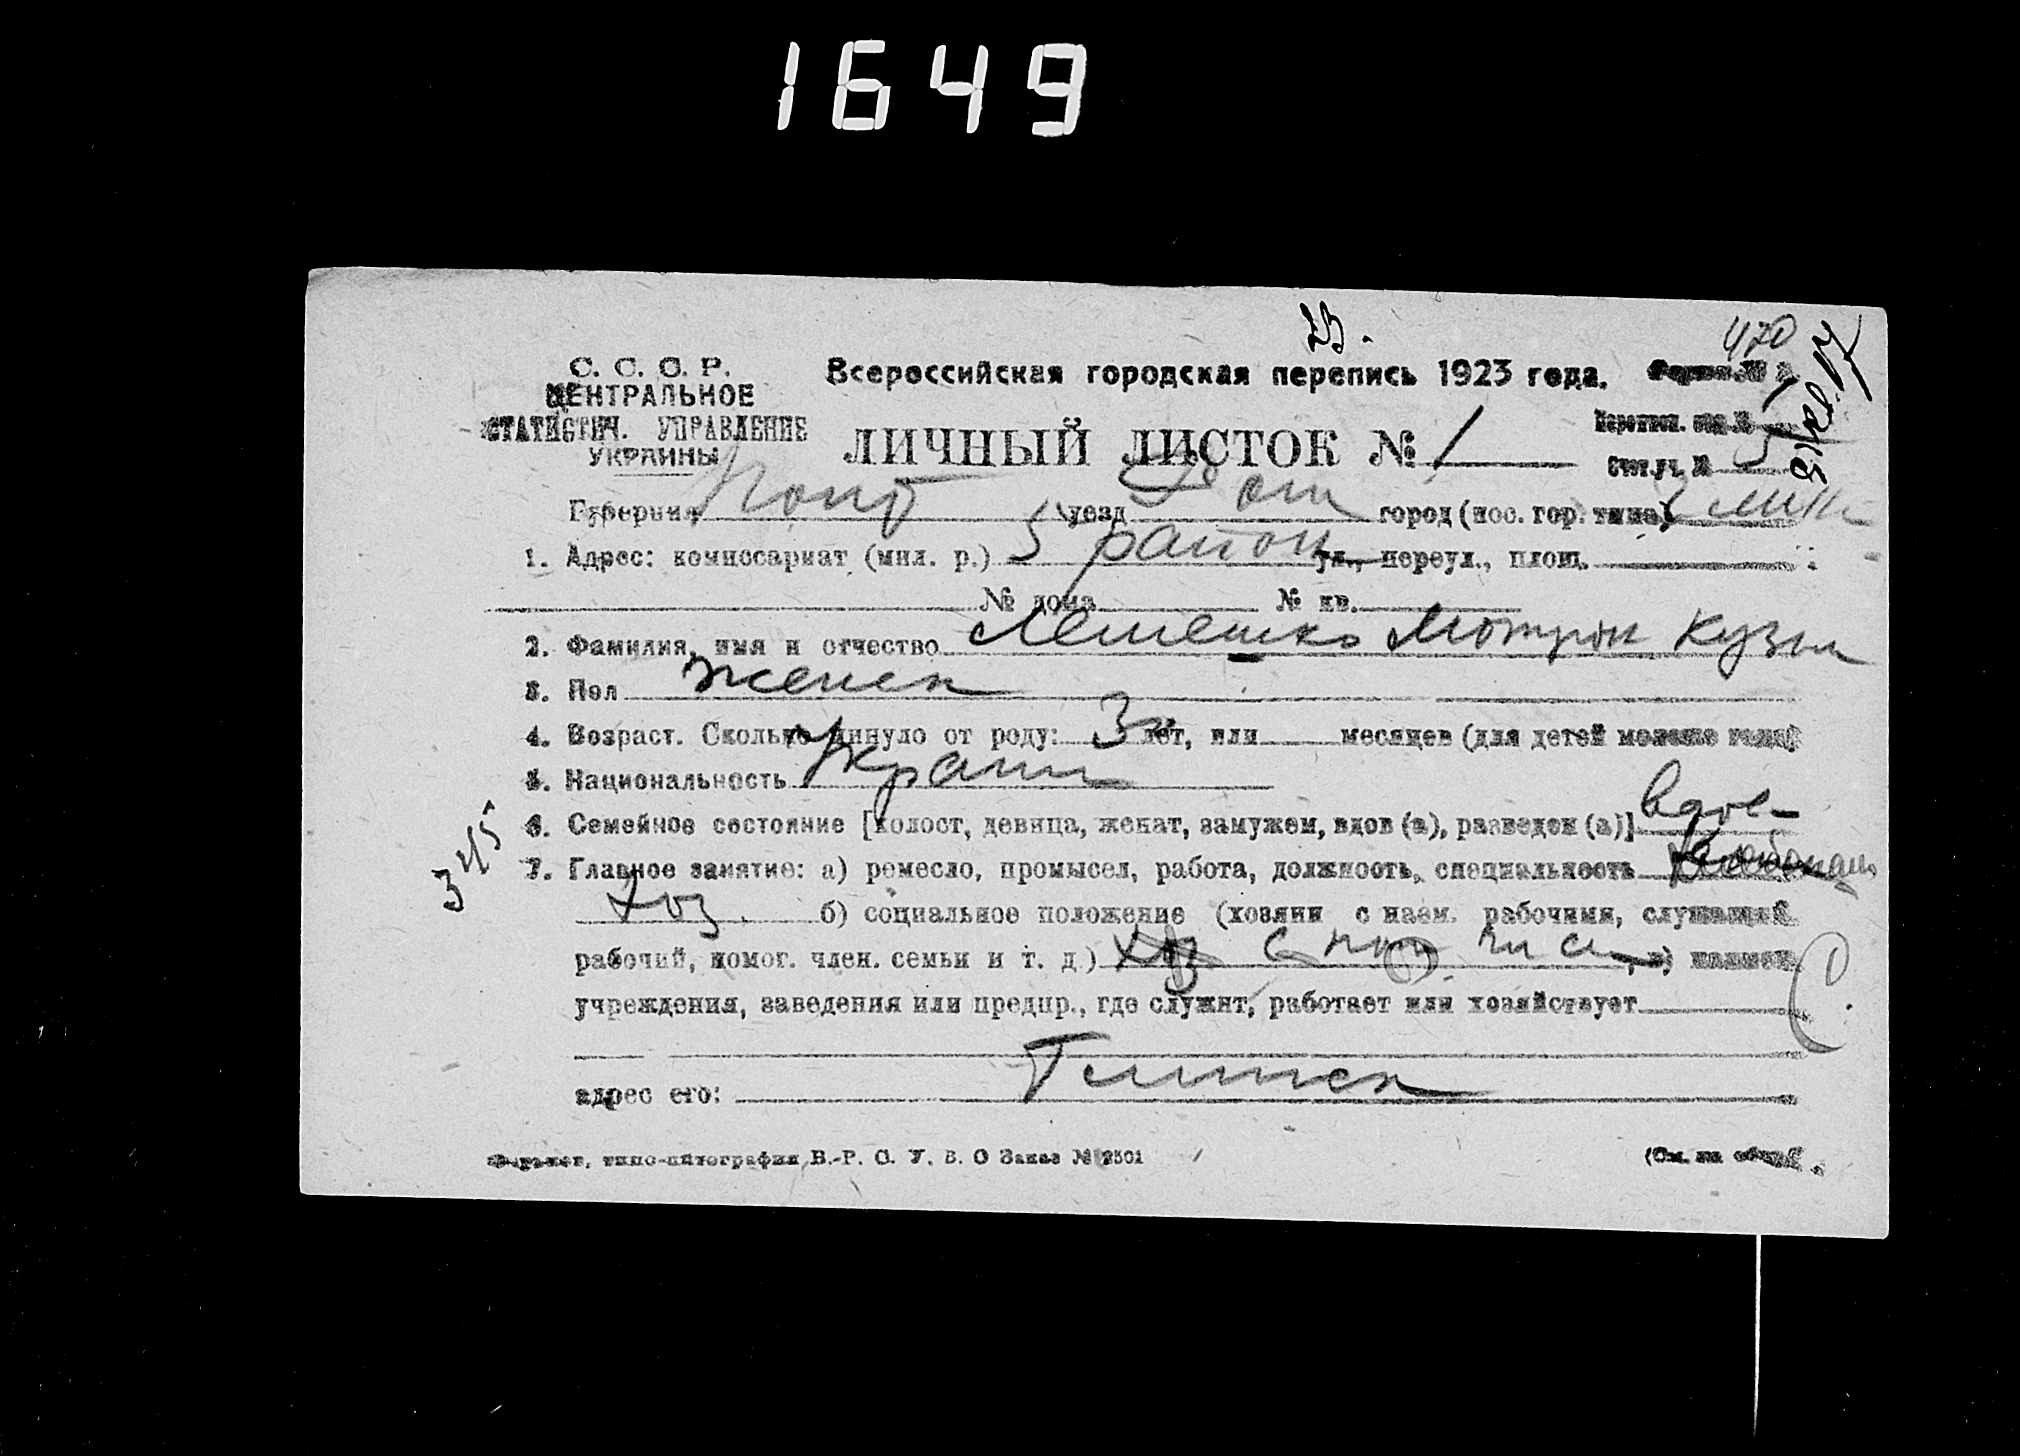 1649
470
С. С. С. Р.
Всероссийская городская перепись 1923 года.
ЦЕНТРАЛЬНОЕ
СТАТИСТИЧ. УПРАВЛЕНИЕ
УКРАИНЫ
ЛИЧНЫЙ ЛИСТОК № 1
Счет. уч. № 5
Губерния уезд город (пос. гор. типа)
1. Адрес: комиссариат (мил. р.) 5 район ул., переул., площ.
№ дома № кв.
2. Фамилия, имя и отчество Лемешко Мотрон Кузм
3. Пол женск
4. Возраст. Сколько минуло от роду: лет, или месяцев (для детей моложе года)
5. Национальность Украин
6. Семейное состояние [холост, девица, женат, замужем, вдов (а), разведен (а)] вдов
345
7. Главное занятие: а) ремесло, промысел, работа, должность, специальность
хоз. б) социальное положение (хозяин с наем. рабочими, служащий
рабочий, помог. член. семьи и т. д.) хоз с , в) наимен.
учреждения, заведения или предпр., где служит, работает или хозяйствует
адрес его:
типо-литография В.-Р. С. У. В. О Заказ №
(См. на